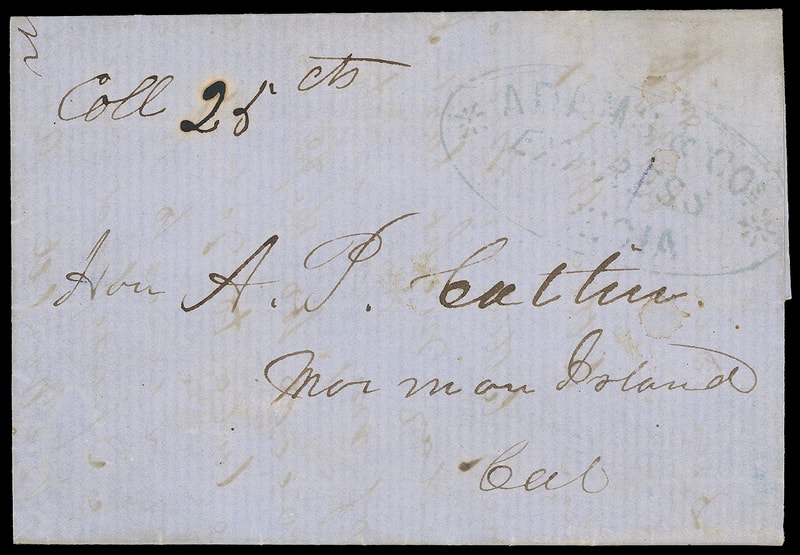 Coll 25 cts
ADAMS & CO.
EXPRESS
Hon A. P. Catlin.
Mormon Island
Cal